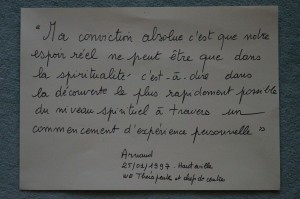 "Ma conviction absolue c'est que notre
espoir réel ne peut être que dans
la spiritualité c'est-à-dire dans
la découverte le plus rapidement possible
du niveau spirituel à travers un
commencement d'expérience personnelle"
Arnaud
25/01/1997 Hauteville
WE Thérapeute et chef de centre